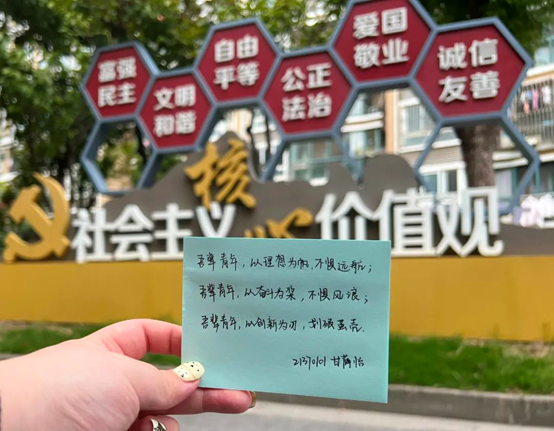 富强
民主
文明
和谐
自由
平等
公正
法治
爱国
敬业
诚信
友善
社会主义核心价值观
吾辈青年，以理想为帆，不惧远航；
吾辈青年，以奋斗为桨，不惧风浪；
吾辈青年，以创新为刃，划破茧壳。